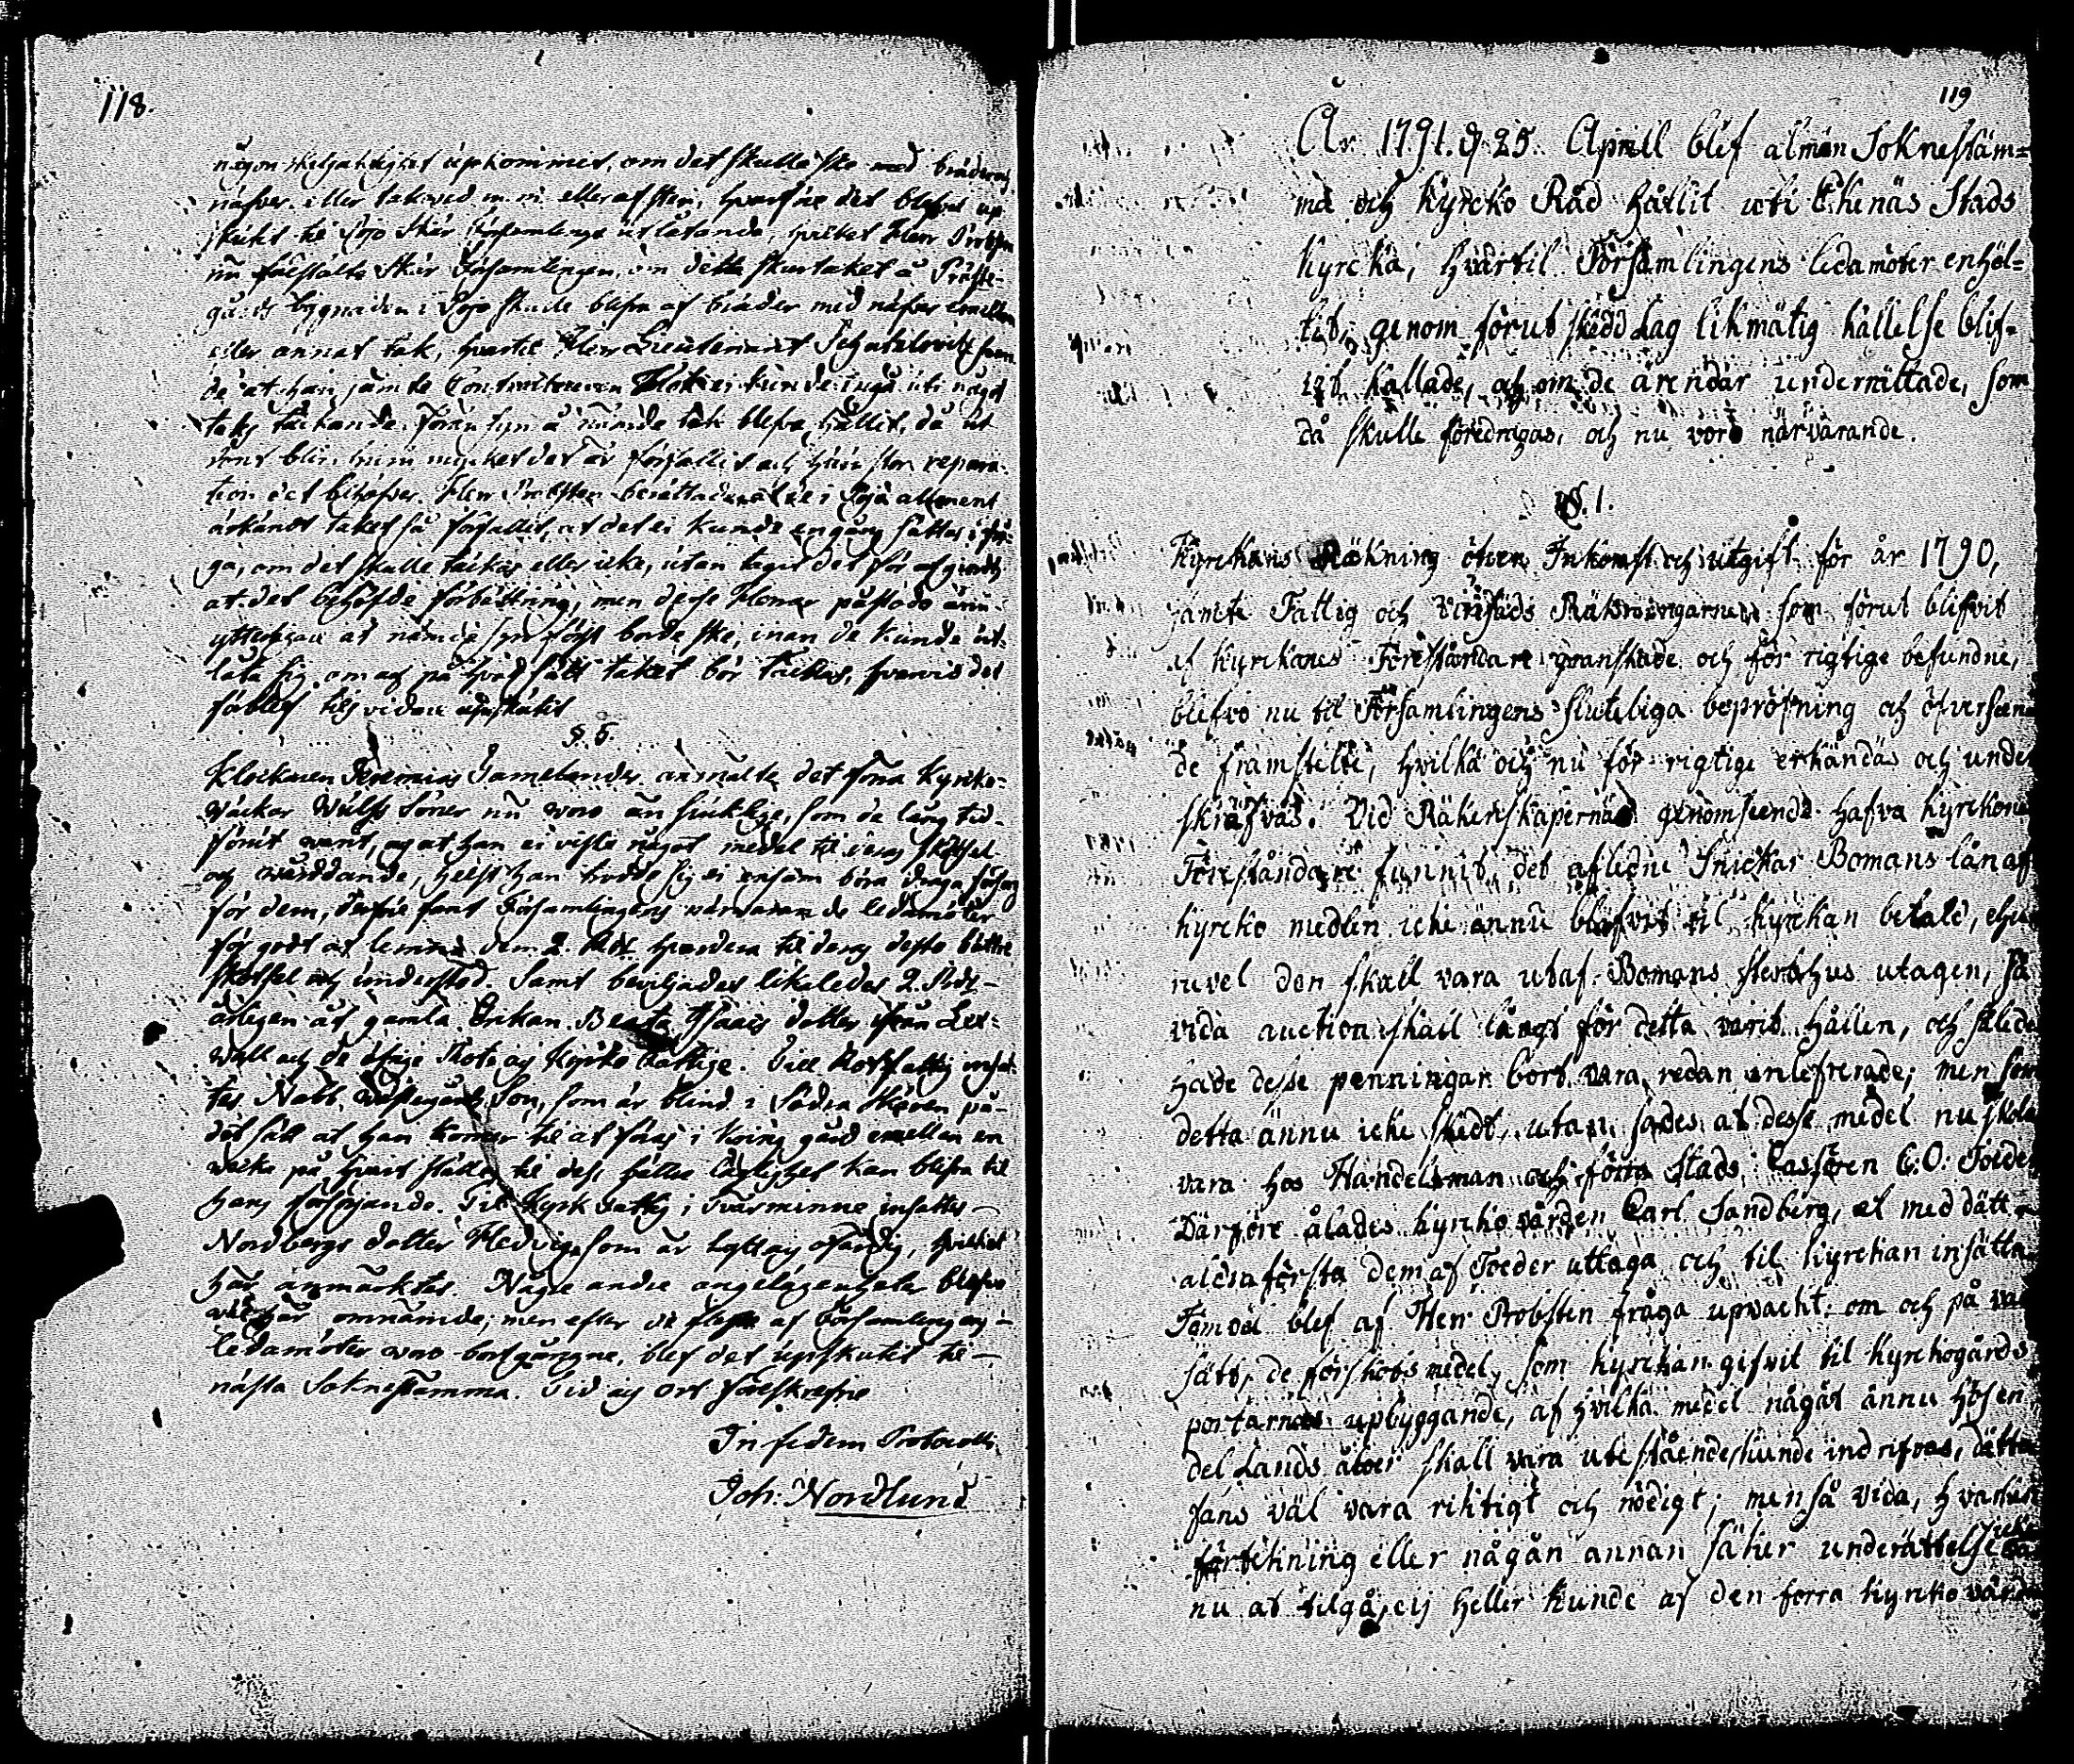 118.
någon skiljaktighet upkommit, om det skulle ske med bräder och
näfver, eller takved m.m. eller af sten, hvarföre det blefvet up
skutit til Pojo Skär församlings utlåtande, hvilket Herr Probsten
nu föreställte Skär Församlingen, om detta skurtaket å Präste-
gårds bygnaden i Pojo skulle blifva af bräder med näfver emellan
eller annat tak, hvartil Herr Lieutenant Schatelovitz sven
de at han jämte Controlleuren ei kunde ingå uti något
taks täckande, förän syn å nämde tak blefve hållit, då ut
rönt blir huru mycket det är förfallit och huru stor repara-
tion det behöfver. Herr Probsten berättade at de i Pojo allment
ärkändt taket så förfallit, at det ei kunde engång sättas i frå-
ga, om det skulle täckas eller icke, utan taget det för afgjordt
at det behöfde förbättring, men desse Herrar påstodo ännu
ytterligare at nämde syn först borde ske, innan de kunde ut-
låta sig om och på hvad sätt taket bör täckas, hvarvid det
så blef tils vidare upskutit
§. 5.
Klockaren Jeremias Gamelander anmälte det förra Kyrko-
wäckar Wulfs Söner nu woro än siuklige, som de lång tid
förut warit, og at han ei viste något medel til deras skötsel
och wårddande, helst han trodde sig ei ensam böra draga försorg
för dem, derföre fant Församlingens närvarande ledamöter
för godt at lemna dem 2. Rdr. hvardera til deras desto bättre
skötsel och understöd. Samt beviljades likaledes 2. Rdr
årligen åt gamla Enkan Beata Isaacs dotter ifrån Lex-
wall och de öfrige Rote og Kyrko Fattige. Till Rotfattig insat-
tes Nabb Westergårds Son, som är blind i Södra Skären på
det sätt at han komer til at föras i kring gård emellan en
wecka på hvart ställe, til dess bättre läglighet kan blifva til
hans försörjande. Til Kyrk Fattig i Tvärminne insattes
Nordbergs dotter Hedvig, som är lytt og ofärdig, hvilket
här anmärktes. Någre andre angelägenheter blefvo
wäl här omnämde, men efter de fleste af Församlingens
ledamöter woro bortgångne, blef det upskutit til
nästa Soknestämma. Tid og ort föreskrefne
In fidem Protocolli
Joh: Nordlund
119
År 1791. d. 25. Aprill blef almän Soknestäm=
ma och Kyrcko Råd hållit uti Ekenäs Stads
Kyrcka, hvartil Församlingens ledamöter enhäl=
tit, genom förut skedd Lag likmätig hållelse blif=
vit kallade, och om de ärender underrättade, som
då skulle föredragas, och nu voro närvarande.
§. 1.
Kyrckans Räkning öfver Inkomst och utgift för år 1790,
jämte Fattig och Vinfads Räkningarne som förut blifvit
af Kyrckans Föreståndare granskade och för rigtige befundne,
blefvo nu til Församlingens slutebiga bepröfning och öfverseen=
de framstelte, hvilka och nu för rigtige erkändas och under
skrefvas. Vid Räkenskapernas genomseende hafva Kyrckone
Föreståndare funnit, det aflidne Snickar Bomans lån af
Kyrcko medlen icke ännu blifvit til Kyrckan betald, ehu
ruvel den skall vara utaf Bomans sterbhus utagen, så
vida auction skall långt för detta varit hållen, och således
hade desse penningar bort vara redan inlefrerade; men som
detta ännu icke skedt, utan sades at desse medel nu skola
vara hos Handelsman och förra Stads Cassören C: O: Toeder
Därföre ålades Kyrcko vården Carl Sandberg, at med dätt
aldraförsta dem af Toeder uttaga och til Kyrckan insätta
Jemväl blef af Herr Probsten fråga upvächt om och på vad
sätt, de förskotsmedel, som Kyrckan gifvit til Kyrckogårds
portarnas upbyggande, af hvilka medel något ännu hos en
del Lands åboer skall vara utestående, kunde indrifvas, dätta
fans väl vara riktigt och nödigt; men så vida, hvarken
förtekning eller någån annan säker underättelse var
nu at tilgå, eij heller kunde af den forra Kyrko vården